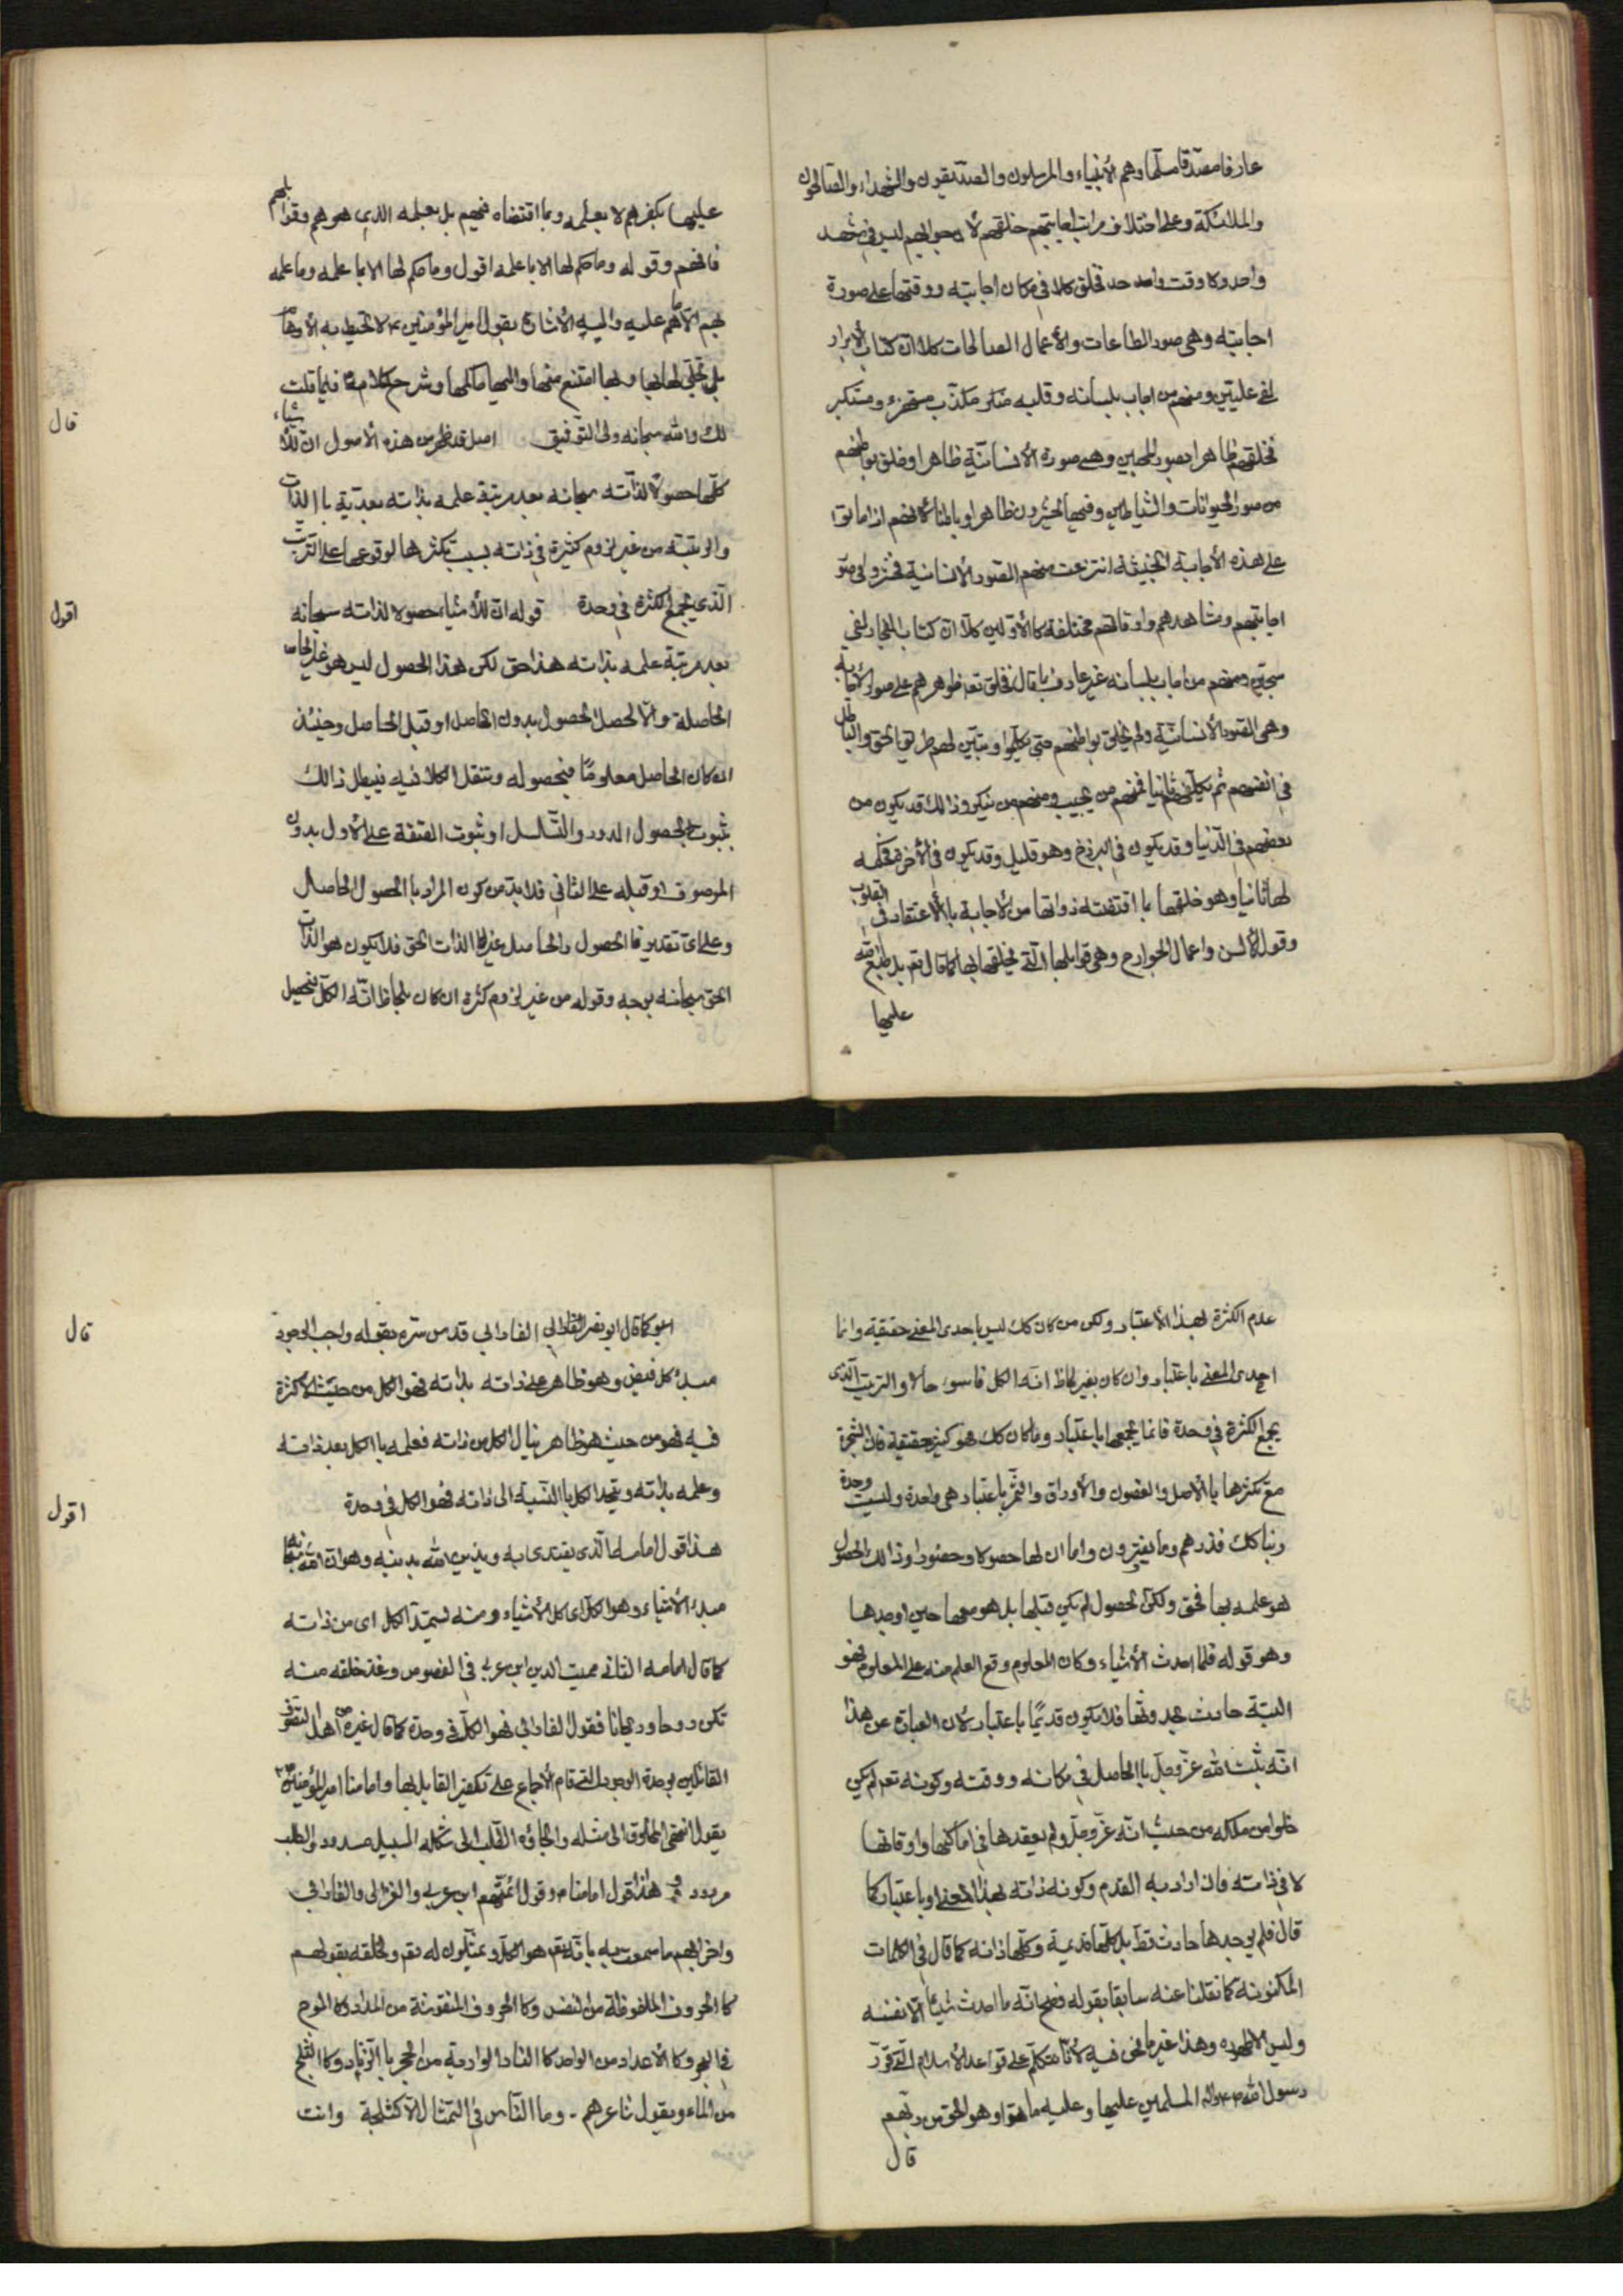 عارفا مصدّقا مسلّما وهم الأنبياء والمرسلون والصدّيقون والشهداء والصالحون
والملائكة وعلى اختلاف مراتب اجابتهم خلقهم لأن جوابهم ليس في مشهد
واحد ولا وقت واحد فخلق كلا في مكان اجابته ووقتها على صورة
اجابته وهى صور الطاعات والأعمال الصالحات كلا ان كتاب الأبرار
لفى عليّين ومنهم من اجاب بلسانه وقلبه منكر مكذّب مستهزء ومستكبر
فخلقهم ظاهرا بصور المجيبين وهى صورة الأنسانيّة ظاهرا وخلق بواطنهم
من صور الحيوانات والشياطين وفيها يحشرون ظاهرا وباطنا لانهم اذا ماتوا
على هذه الأجابة الخبيثة انتزعت منهم الصّور الأنسانية فحشروا في صور
اجابتهم ومشاهدهم واوقاتهم مختلفة كالأوّلين كلّا انّ كتاب الفجّار لفي
سجّين ومنهم من اجاب بلسانه غير عارف بما قال فخلق تعالى ظواهرهم على صور الأجابة
وهى الصّور الأنسانيّة ولم يخلق بواطنهم حتى يكلّفوا ويتبيّن لهم طريق الحق والباطل
في انفسهم ثم يكلّفهم ثانيا فمنهم من يجيب ومنهم من ينكر وذالك قد يكون من
بعضهم في الدّنيا وقد يكون في البرزخ وهو قليل وقد يكون في الأخرة فحكمه
لها ثانيا وهو خلقها بما اقتضته ذواتها من الأجابة بالأعتقاد في القلوب
وقول الألسن واعمال الجوارح وهى قوابلها التى يخلقها بها كما قال تعم بل طبع الله
عليها
عليها بكفرهم لا بعلمه وبما اقتضاه فيهم بل بعلمه الذى هو هم وقوابلهم
فافهم وقوله وما حكم لها الا بما علمه اقول وما حكم لها الا بما علمه وما علمه
بهم الّا ما هم عليه واليه الأشارة بقول امير المؤمنين ع لا تحيط به الأوهام
بل تجلّى لها بها وبها امتنع منها واليها حاكمها وشرح كلامه فيما قلت
لك والله سبحانه ولى التوفيق اصل قد ظهر من هذه الأصول ان للأشياء
قال
كلّها حصولا لذاته سبحانه بعد مرتبة علمه بذاته بعديّة بالذات
والرتبة من غير لزوم كثيرة في ذاته بسبب تكثرها لوقوعها على الترتيب
الّذي يجمع الكثرة في وحدة قوله ان للأشياء حصولا لذاته سبحانه
اقول
بعد مرتبة علمه بذاته هذا حق لكن هذا الحصول ليس هو غير الحاصل
الحاصلة والّا لحصل الحصول بدون الحاصل او قبل الحاصل وحينئذ
ان كان الحاصل معلومًا فبحصوله وننقل الكلام فيه فيبطل ذالك
بثبوت الحصول الدور والتسلسل او ثبوت الصّفة على الأول بدون
الموصوف او قبله على الثاني فلا بد من كون المراد با الحصول الحاصل
وعلى اى تقدير فا الحصول والحاصل غير الذات الحق فلا يكون هو الذات
الحق سبحانه بوجه وقوله من غير لزوم كثرة ان كان بلحاظ انّه الكل فيحصل
عدم الكثرة لهذا الأعتبار ولكن من كان كك ليس باحدى المعنى حقيقة وانما
احدى المعنى باعتبار وان كان بغير لحاظ انّه الكل فاسوء حالا والترتيب الّذى
يجمع الكثرة في وحدة فانما يجمعها باعتبار وما كان كك هو كثير حقيقة فان الشجرة
مع تكثرها بالأصل والغصون والأوراق والثمر باعتبار هى واحدة وليست وحدة
ربنا كك فذرهم وما يفترون واما ان لها حصولا وحضورا وذالك الحصول
هو علمه بها فحق ولكن الحصول لم يكن قبلها بل هو معها حين اوجدها
وهو قوله فلما احدث الأشياء وكان المعلوم وقع العلم منه على المعلوم فهو
البتة حادث بحدوثها فلا يكون قديمًا باعتبار لأن العبارة عن هذا
انّه يثبت لله عزّ وجلّ با الحاصل في مكانه ووقته وكونه تعم لم يكن
خلوا من ملكه من حيث انّه عزّ وجلّ ولم يفقدها في اماكنها واوقاتها
لا في ذاته فان اراد به القدم وكونه ذاته لهذا المعنى او باعتبار كما
قال فلم يوجد ها حادث قط بل كلّها قديمة وكلّها ذاته كما قال في الكلمات
المكنونة كما نقلنا عنه سابقا بقوله فصح انّه ما احدث شيئا الّا نفسه
وليس الا ظهوره وهذا غير ما نحن فيه لأنّا نتكلّم على قواعد الأسلام الّتى قرّر
رسول الله ص واله المسلمين عليها وعليه ما هو او هو الحق من ربّهم
قال
اصل كما قال ابو نصر الفارابي قدس سرّه بقوله واجب الوجود
قال
مبدء كل فيض وهو ظاهر على ذاته بذاته فهو الكل من حيث لا كثرة
فيه فهو من حيث هو ظاهر ينال الكل من ذاته فعلمه با الكل بعد ذاته
وعلمه بذاته ويتّحد الكل با النّسبة الى ذاته فهو الكل في وحدة
هذا قول امامه الذى يقتدى به ويدين الله بدينه وهو ان الله سبحانه
اقول
مبدء الأشياء وهو الكل اى كل الأشياء ومنه يستمدّ الكل اى من ذاته
كما قال امامه الثاني مميت الدين ابن عربي في الفصوص وغذ خلقه منه
تكن روحا وريحانا فقول الفارابي فهو الكلّ في وحدة كما قال غيره من اهل التصوّف
القائلين بوحدة الوجود التى قام الأجماع على تكفير القايل بها وامامنا امير المؤمنين ع
يقول انتهى المخلوق الى مثله والجاؤه الطلب الى شكله السبيل مسدود والطلب
مردود فهذا قول امامنا ع وقول ائمّتهم ابن عربي والغزالى والفارابي
واخرابهم ما سمعت به بانّه تعم هو الكل ويمثّلون له تعم ولخلقه بقولهم
كا الحروف الملفوظة من النفس وكا الحروف المنقوشة من المداد وكا الموج
في البحر وكا الأعداد من الواحد كا النار الوارية من الحجر با الزّناد وكا الثلج
من الماء ويقول شاعرهم - وما النّاس في التمثال الّا كثلجة وانت